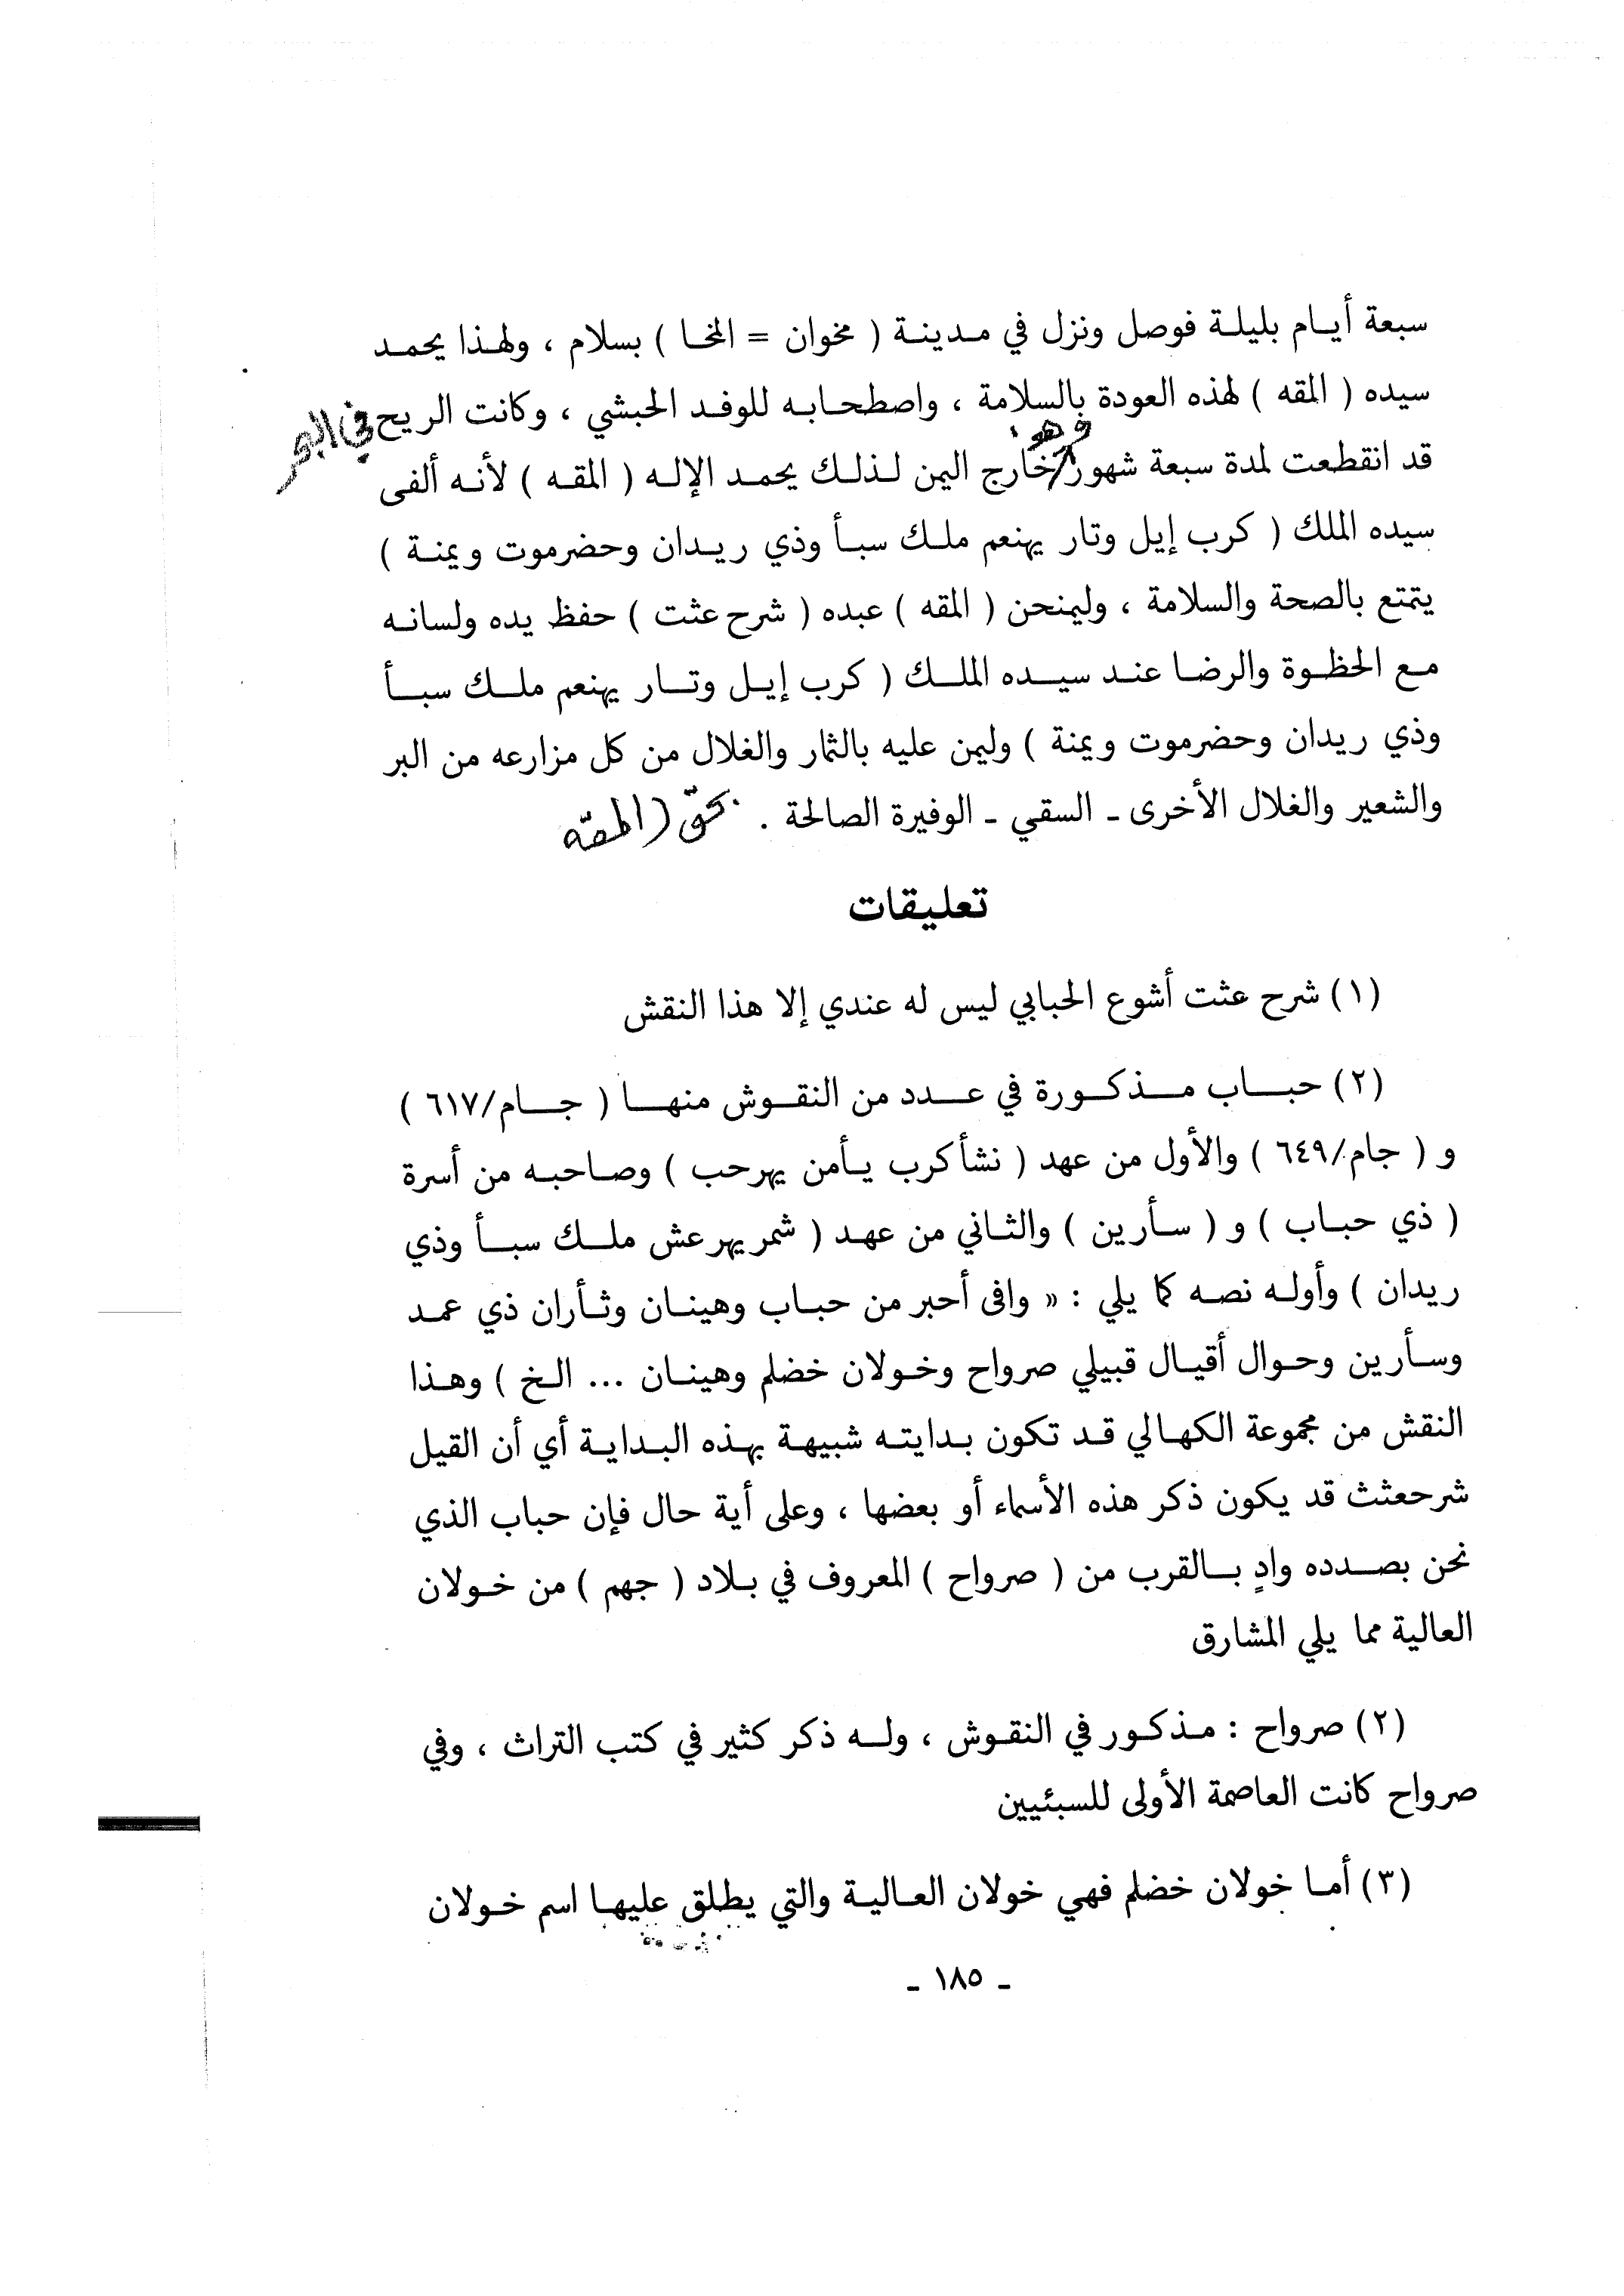 سبعة أيام بليلة فوصل ونزل في مدينة ( مخوان = المخا ) بسلام ، ولهذا يحمد
سيده ( المقه ) لهذه العودة بالسلامة ، واصطحابه للوفد الحبشي ، وكانت الريح في البحر
وهو
قد انقطعت لمدة سبعة شهور خارج اليمن لذلك يحمد الإله ( المقه ) لأنه ألفى
سيده الملك ( كرب إيل وتار يهنعم ملك سبأ وذي ريدان وحضرموت ويمنة )
يتمتع بالصحة والسلامة ، وليمنحن ( المقه ) عبده ( شرح عثت ) حفظ يده ولسانه
مع الحظوة والرضا عند سيده الملك ( كرب إيل وتار يهنعم ملك سبأ
وذي ريدان وحضرموت ويمنة ) وليمن عليه بالثمار والغلال من كل مزارعه من البر
والشعير والغلال الأخرى ـ السقي ـ الوفيرة الصالحة . بحق ( المقه
تعليقات
(١) شرح عثت أشوع الحبابي ليس له عندي إلا هذا النقش
(٢) حباب مذكورة في عدد من النقوش منها ( جام/٦١٧ )
و ( جام/٦٤٩ ) والأول من عهد ( نشأ كرب يأمن يهرحب ) وصاحبه من أسرة
( ذي حباب ) و ( سأرين ) والثاني من عهد ( شمر يهرعش ملك سبأ وذي
ريدان ) وأوله نصه كما يلي : « وافى أحبر من حباب وهينان وثأران ذي عمد
وسأرين وحوال أقيال قبيلي صرواح وخولان خضلم وهينان ... الخ ) وهذا
النقش من مجموعة الكهالي قد تكون بدايته شبيهة بهذه البداية أي أن القيل
شرحعثث قد يكون ذكر هذه الأسماء أو بعضها ، وعلى أية حال فإن حباب الذي
نحن بصدده وادٍ بالقرب من ( صرواح ) المعروف في بلاد ( جهم ) من خولان
العالية مما يلي المشارق
(٢) صرواح : مذكور في النقوش ، وله ذكر كثير في كتب التراث ، وفي
صرواح كانت العاصمة الأولى للسبئيين
(٣) أما خولان خضلم فهي خولان العالية والتي يطلق عليها اسم خولان
ـ ١٨٥ ـ